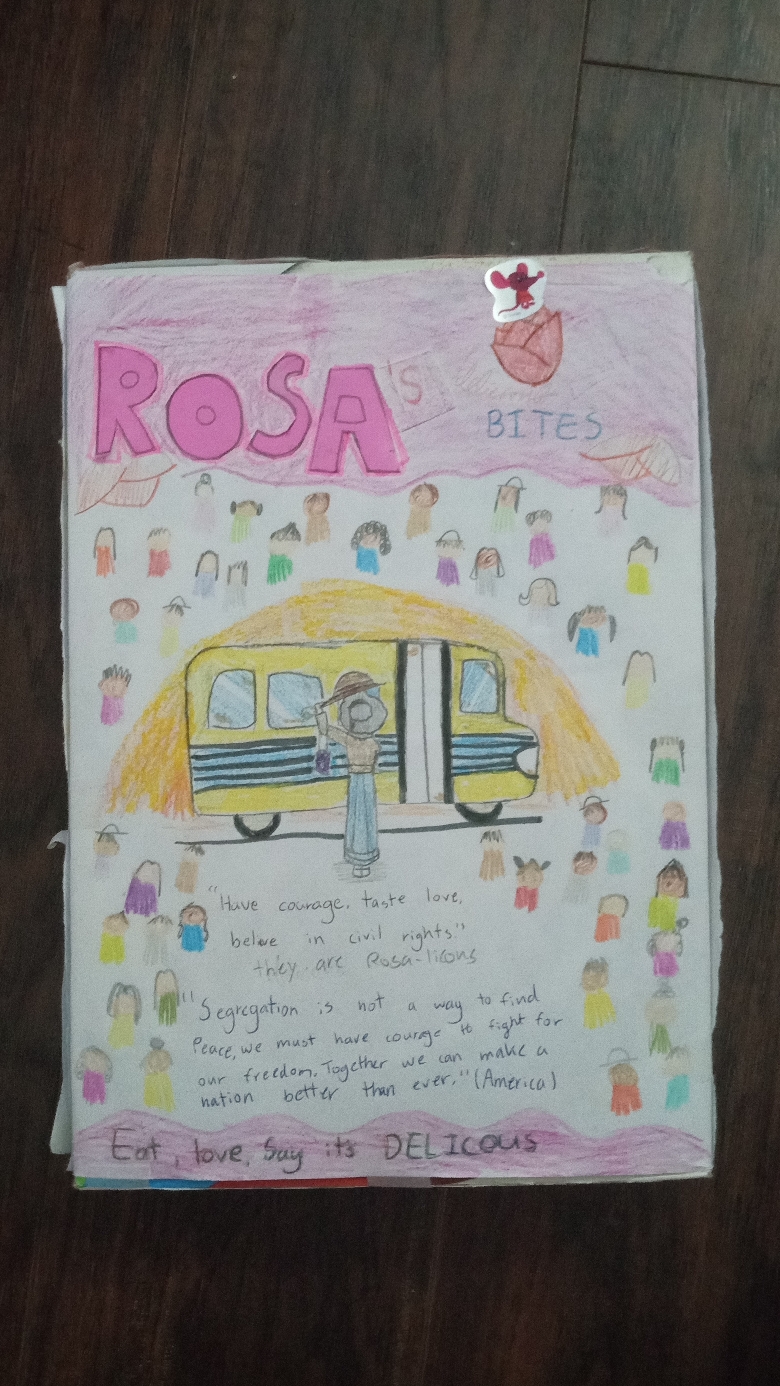 ROSA'S
BITES
"Have courage, taste love,
beleve in civil rights."
they are Rosa-licous
"Segregation is not a way to find
Peace, we must have courage to fight for
our freedom. Together we can make a
nation better than ever." (America)
Eat, love, Say its DELICOUS